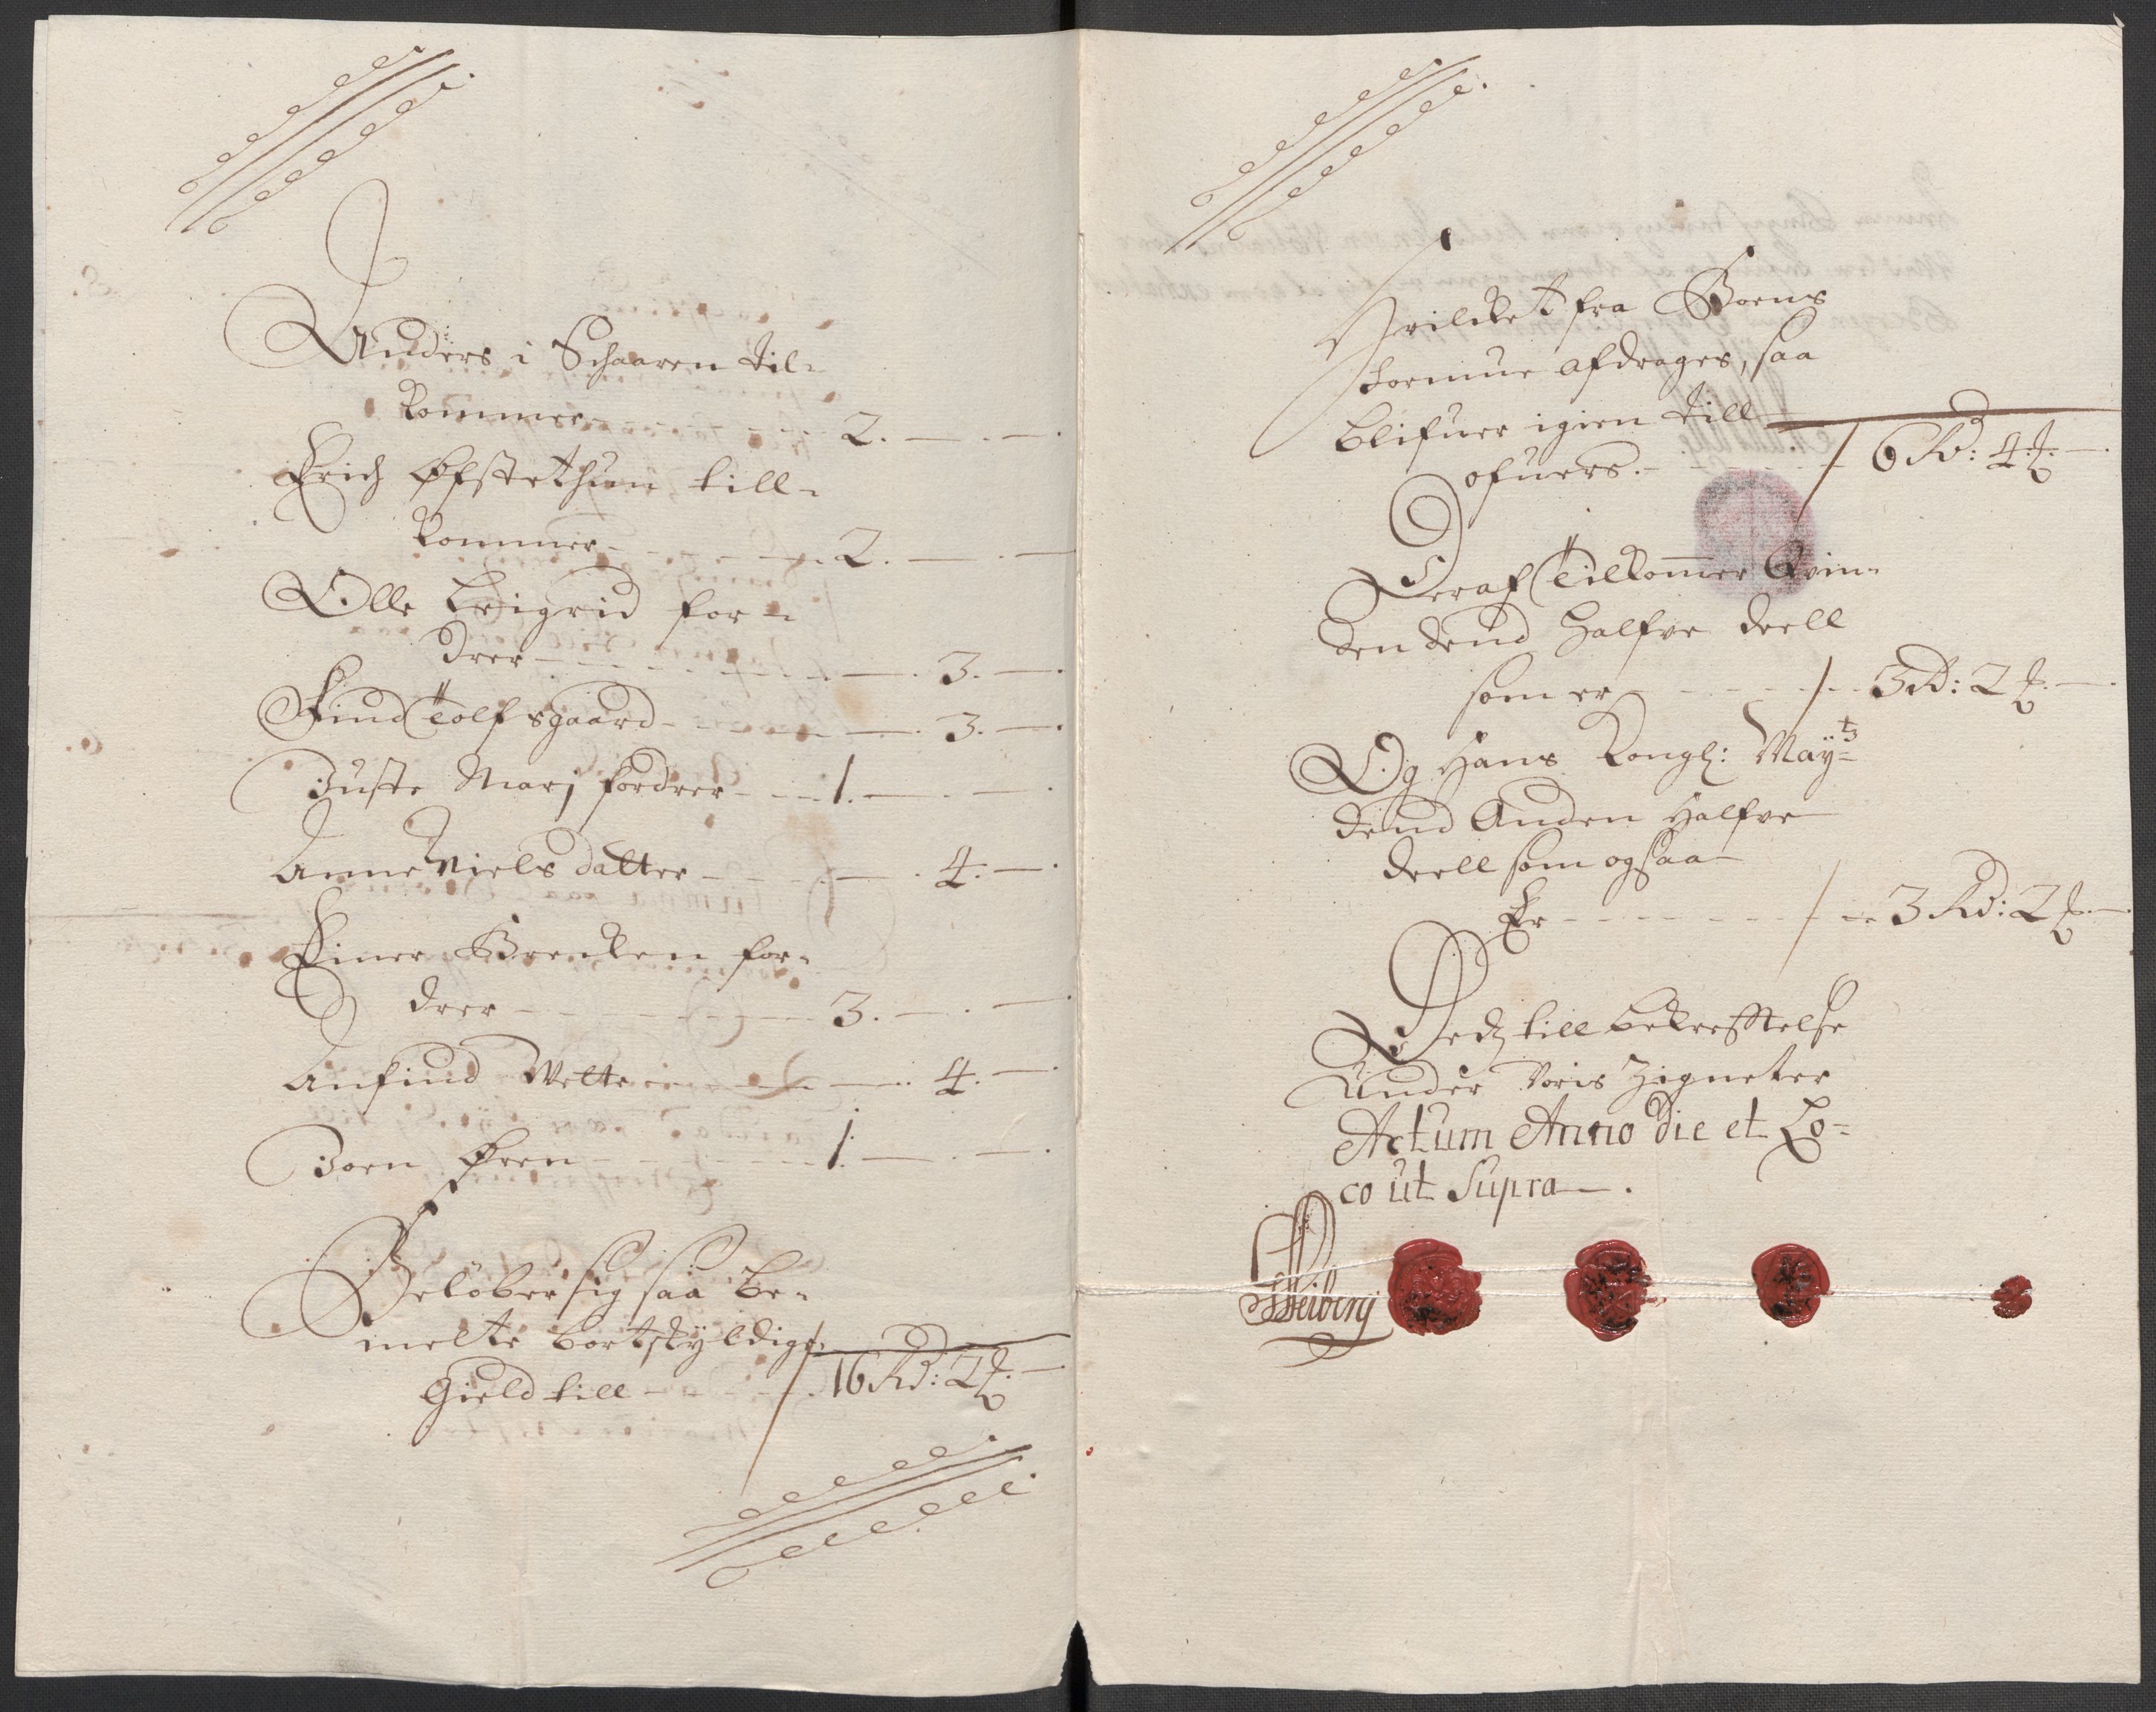 Anders i Schaaren til-
kommer - - - - 2. — . —
Erich Øfstethun till-
kommer - - - - 2. — . —
Olle Leigrid for-
drer - - - - — . 3. — .
Find Tolfsgaard - - - — . 3. — .
Juste Marj fordrer - - 1. — . — .
Anne Niels datter - - - — . 4. — .
Einer Brecken for-
drer - - - - 3. — . — .
Anfind Melte - - - — . 4. — .
Joen Øren - - - - 1. — . — .
Beløber sig saa be-
melte bortskÿldige
Gield till - - - 16 Rd: 2 ℔. —
Hvilcket fra Boens
formue afdrages, saa
blifuer igien till
ofuers. - - - 6 Rd: 4 ℔. — .
Deraf Tilkommer Qvin-
den dend halfve deell
som er - - - 3 Rd: 2 ℔. — .
Og Hans Kongl: Maÿ=ts
dend Anden Halfve
deell som ogsaa
Er - - - - 3 Rd: 2 ℔. —
Dedz till bekrefftelse
Under Voris Zigneter
Actum Anno die et Lo=
co ut Supra — .
Heiberg